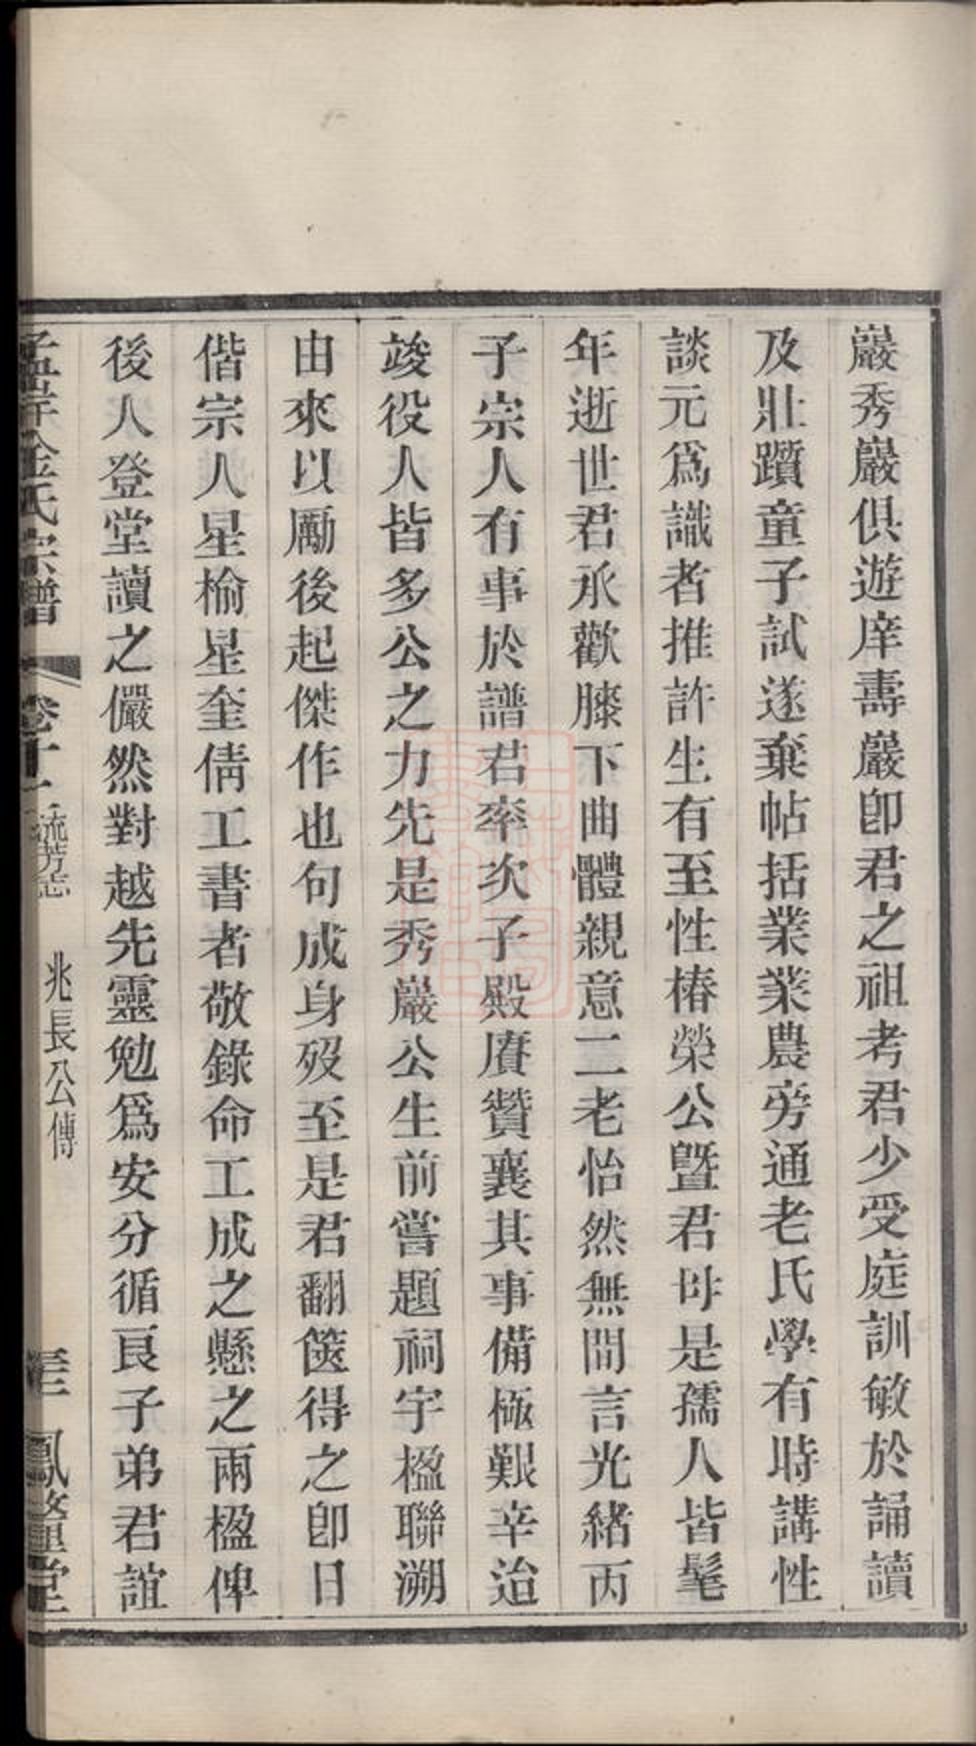 巖秀巖俱遊庠壽巖卽君之祖考君少受庭訓敏於誦讀
及壯躓童子試遂棄帖括業業農旁通老氏學有時講性
談元爲識者推許生有至性椿榮公曁君母是孺人皆髦
年逝世君承歡膝下曲體親意二老怡然無間言光緒丙
子宗人有事於譜君率次子殿賡贊襄其事備極艱辛迨
竣役人皆多公之力先是秀巖公生前嘗題祠宇楹聯溯
由來以勵後起傑作也句成身歿至是君翻篋得之卽日
偕宗人星榆星奎倩工書者敬錄命工成之懸之兩楹俾
後人登堂讀之儼然對越先靈勉爲安分循良子弟君誼
氏宗譜
卷十一
流芳志
兆長公傳
堂